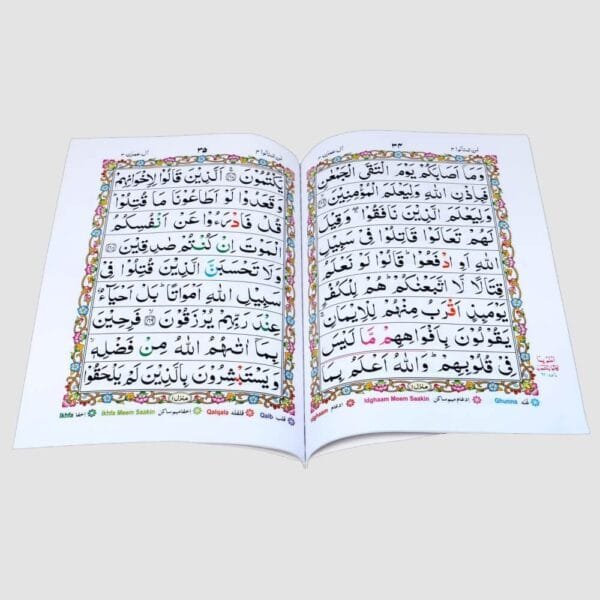 لن تنالوا ٤
٣٤
آل عمرٰن ٣
وَمَآ اَصَابَكُمْ يَوْمَ الْتَقَى الْجَمْعٰنِ
فَبِاِذْنِ اللّٰهِ وَلِيَعْلَمَ الْمُؤْمِنِيْنَ
وَلِيَعْلَمَ الَّذِيْنَ نَافَقُوْا ۚ وَقِيْلَ
لَهُمْ تَعَالَوْا قَاتِلُوْا فِيْ سَبِيْلِ
اللّٰهِ اَوِ ادْفَعُوْا ؕ قَالُوْا لَوْ نَعْلَمُ
قِتَالًا لَّا تَّبَعْنٰكُمْ ؕ هُمْ لِلْكُفْرِ
يَوْمَئِذٍ اَقْرَبُ مِنْهُمْ لِلْاِيْمَانِ ۚ
يَقُوْلُوْنَ بِاَفْوَاهِهِمْ مَّا لَيْسَ
فِيْ قُلُوْبِهِمْ ؕ وَاللّٰهُ اَعْلَمُ بِمَا
منزل ١
Ghunna غنه
Idghaam Meem Saakin ادغام میم ساکن
Idghaam ادغام
لن تنالوا ٤
٣٥
آل عمرٰن ٣
يَكْتُمُوْنَ ۚ اَلَّذِيْنَ قَالُوْا لِاِخْوَانِهِمْ
وَقَعَدُوْا لَوْ اَطَاعُوْنَا مَا قُتِلُوْا ؕ
قُلْ فَادْرَءُوْا عَنْ اَنْفُسِكُمُ
الْمَوْتَ اِنْ كُنْتُمْ صٰدِقِيْنَ
وَلَا تَحْسَبَنَّ الَّذِيْنَ قُتِلُوْا فِيْ
سَبِيْلِ اللّٰهِ اَمْوَاتًا ؕ بَلْ اَحْيَآءٌ
عِنْدَ رَبِّهِمْ يُرْزَقُوْنَ ۙ فَرِحِيْنَ
بِمَآ اٰتٰىهُمُ اللّٰهُ مِنْ فَضْلِهٖ ۙ
وَيَسْتَبْشِرُوْنَ بِالَّذِيْنَ لَمْ يَلْحَقُوْا
منزل ١
Qalb قلب
Qalqala قلقله
Ikhfa Meem Saakin اخفا میم ساکن
Ikhfa اخفا